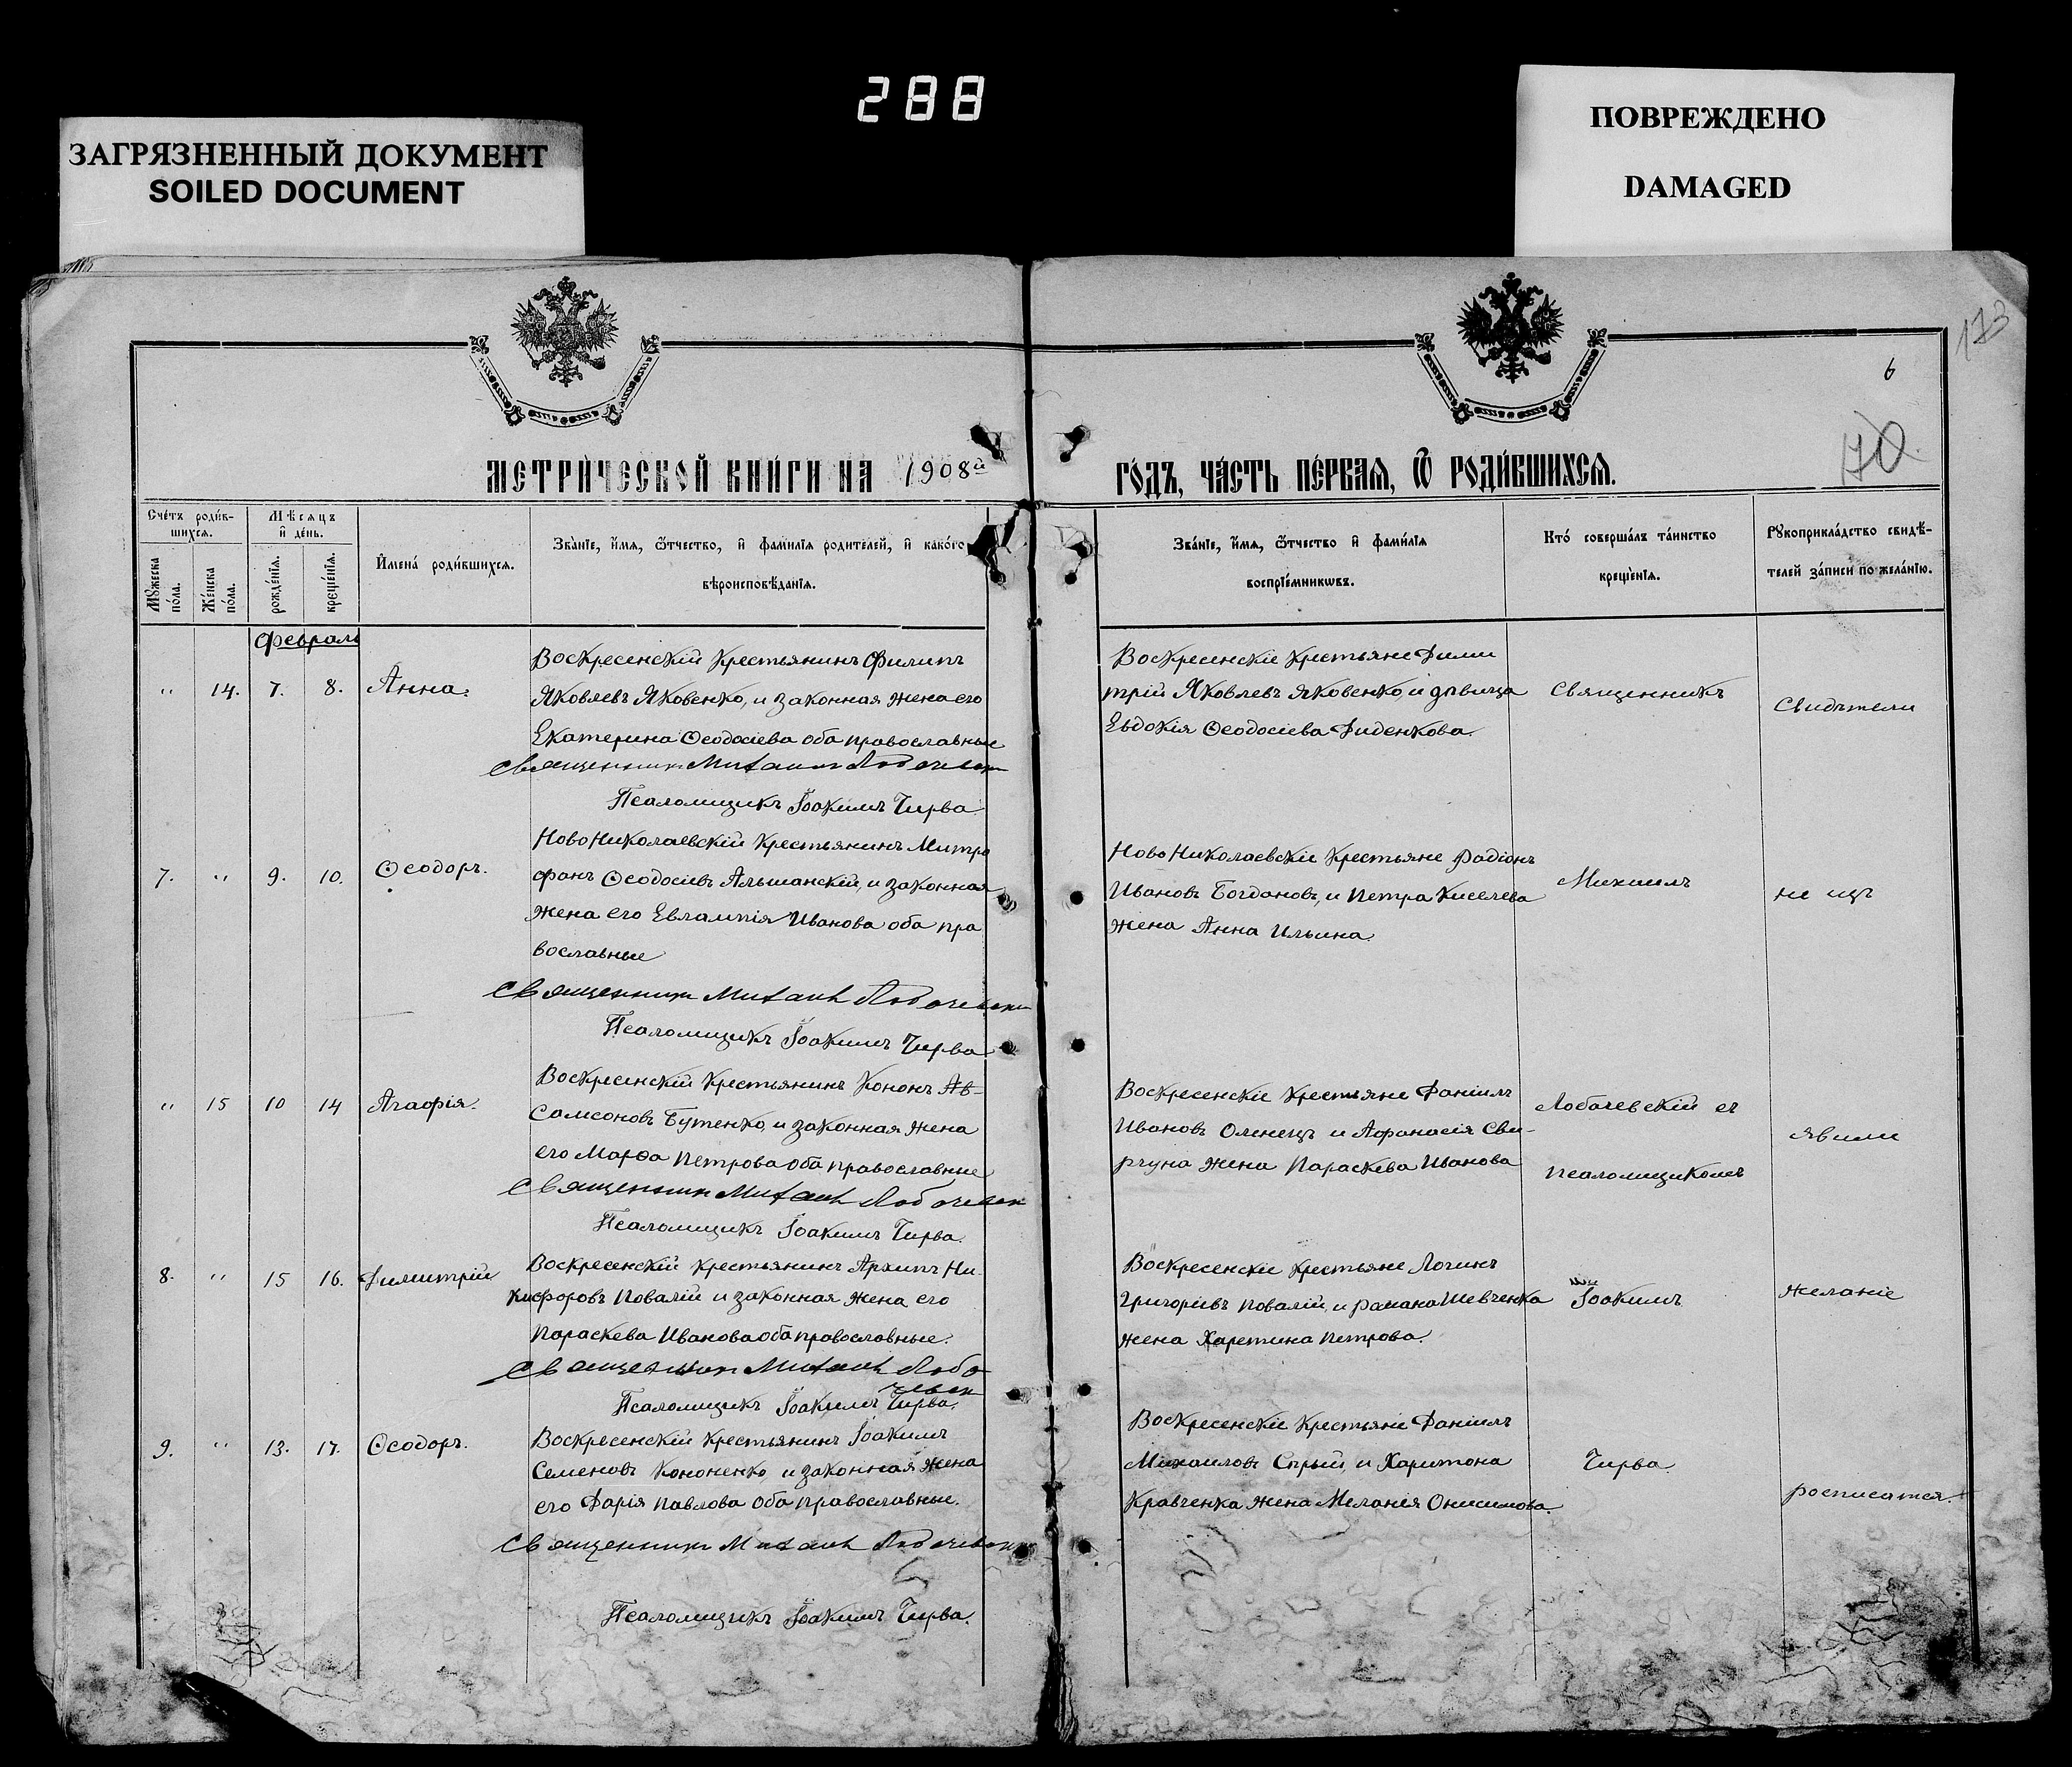 288
ЗАГРЯЗНЕННЫЙ ДОКУМЕНТ
SOILED DOCUMENT
ПОВРЕЖДЕНО
DAMAGED
173
6
170
МЕТРИ́ЧЕСКОЙ КНИ́ГИ НА 1908й
ГО́ДЪ, ЧА́СТЬ ПЕ́РВАѦ, Ѿ РОДИ́ВШИХСѦ.
Сче́тъ роди́в-
шихсѧ.
Мꙋжеска по́ла.
Же́нска по́ла.
Мѣсѧцъ
и҆ де́нь.
рожде́нїѧ.
креще́нїѧ.
И҆мена́ роди́вшихсѧ.
Зва́нїе, и҆́мѧ, ѻ҆́тчество, и҆ фами́лїѧ роди́телей, и҆ како́го
вѣроисповѣ́данїѧ.
Зва́нїе, и҆́мѧ, ѻ҆́тчество и҆ фами́лїѧ
воспрїе́мникѡвъ.
Кто́ соверша́лъ та́инство
креще́нїѧ.
Рꙋкоприкла́дство свидѣ́-
телей за́писи по жела́нїю.
Февраль
" 14. 7. 8. Анна.
Воскресенскій Крестьянинъ Филипъ
Яковлевъ Яковенко, и законная жена его
Екатерина Ѳеодосіева оба православные
Священникъ Михаилъ Лобачевск
Псаломщикъ Іоакимъ Чирва
Воскресенскіе Крестьяне Дими
трій Яковлевъ Яковенко, и дѣвица
Евдокія Ѳеодосіева Диденкова.
Священникъ
Свидѣтели
7. " 9. 10. Ѳеодоръ.
Ново Николаевскій Крестьянинъ Митро
фанъ Ѳеодосіевъ Альшанскій, и законная
жена его Евлампія Иванова оба пра
вославные
Священникъ Михаилъ Лобачевск
Псаломщикъ Іоакимъ Чирва
Ново Николаевскіе Крестьяне Радіонъ
Ивановъ Богдановъ, и Петра Киселева
жена Анна Ильина.
Михаилъ
не изъ
" 15 10 14 Агафія.
Воскресенскій Крестьянинъ Кононъ Ав-
Самсоновъ Бутенко, и законная жена
его Марѳа Петрова оба православные
Священникъ Михаилъ Лобачевск
Псаломщикъ Іоакимъ Чирва.
Воскресенскіе Крестьяне Даніилъ
Ивановъ Оленецъ и Афанасія Сви-
ргуна жена Параскева Иванова
Лобачевскій съ
псаломщикомъ
явили
8. " 15 16. Димитрій
Воскресенскій Крестьянинъ Архипъ Ни-
кифоровъ Повалій и законная жена его
Параскева Иванова оба православные.
Священникъ Михаилъ Лоба
чевск
Псаломщикъ Іоакимъ Чирва.
Воскресенскіе Крестьяне Логинъ
Григоріевъ Повалій, и Романа Шевченка
жена Харетина Петрова.
Іоакимъ
желаніе
9. " 13. 17. Ѳеодоръ.
Воскресенскій Крестьянинъ Іоакимъ
Семеновъ Кононенко, и законная жена
его Дарія Павлова оба православные.
Священникъ Михаилъ Лобачевск
Псаломщикъ Іоакимъ Чирва.
Воскресенскіе Крестьяне Даніилъ
Михаиловъ Сѣрый, и Харитона
Кравченка жена Меланія Онисимова.
Чирва.
росписатся.